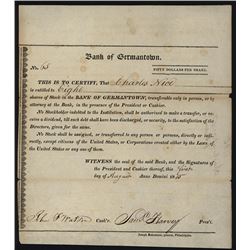 Bank of Germantown.
No. 65
FIFTY DOLLARS PER SHARE.
THIS IS TO CERTIFY, That Charles Nice
is entitled to Eight
shares of Stock in the BANK OF GERMANTOWN, transferable only in person, or by
attorney at the Bank, in the presence of the President or Cashier.
No Stockholder indebted to the Institution, shall be authorized to make a transfer, or receive
a dividend, till such debt shall have been discharged, or security, to the satisfaction of the
Directors, given for the same.
No Stock shall be assigned, or transferred to any person, directly or indirectly,
except citizens of the United States, or Corporations created either by the Laws of
the United States or any one of them.
WITNESS the seal of the said Bank, and the Signatures of
the President and Cashier thereof, this first
day of August Anno Domini 18
Cash'r. Saml. Harvey Pres't.